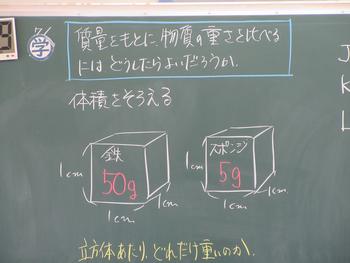 学
質量をもとに、物質の重さを比べる
にはどうしたらよいだろうか。
体積をそろえる
鉄
50g
1cm
1cm
1cm
スポンジ
5g
1cm
1cm
1cm
立方体あたり、どれだけ重いのか。
J
K
L